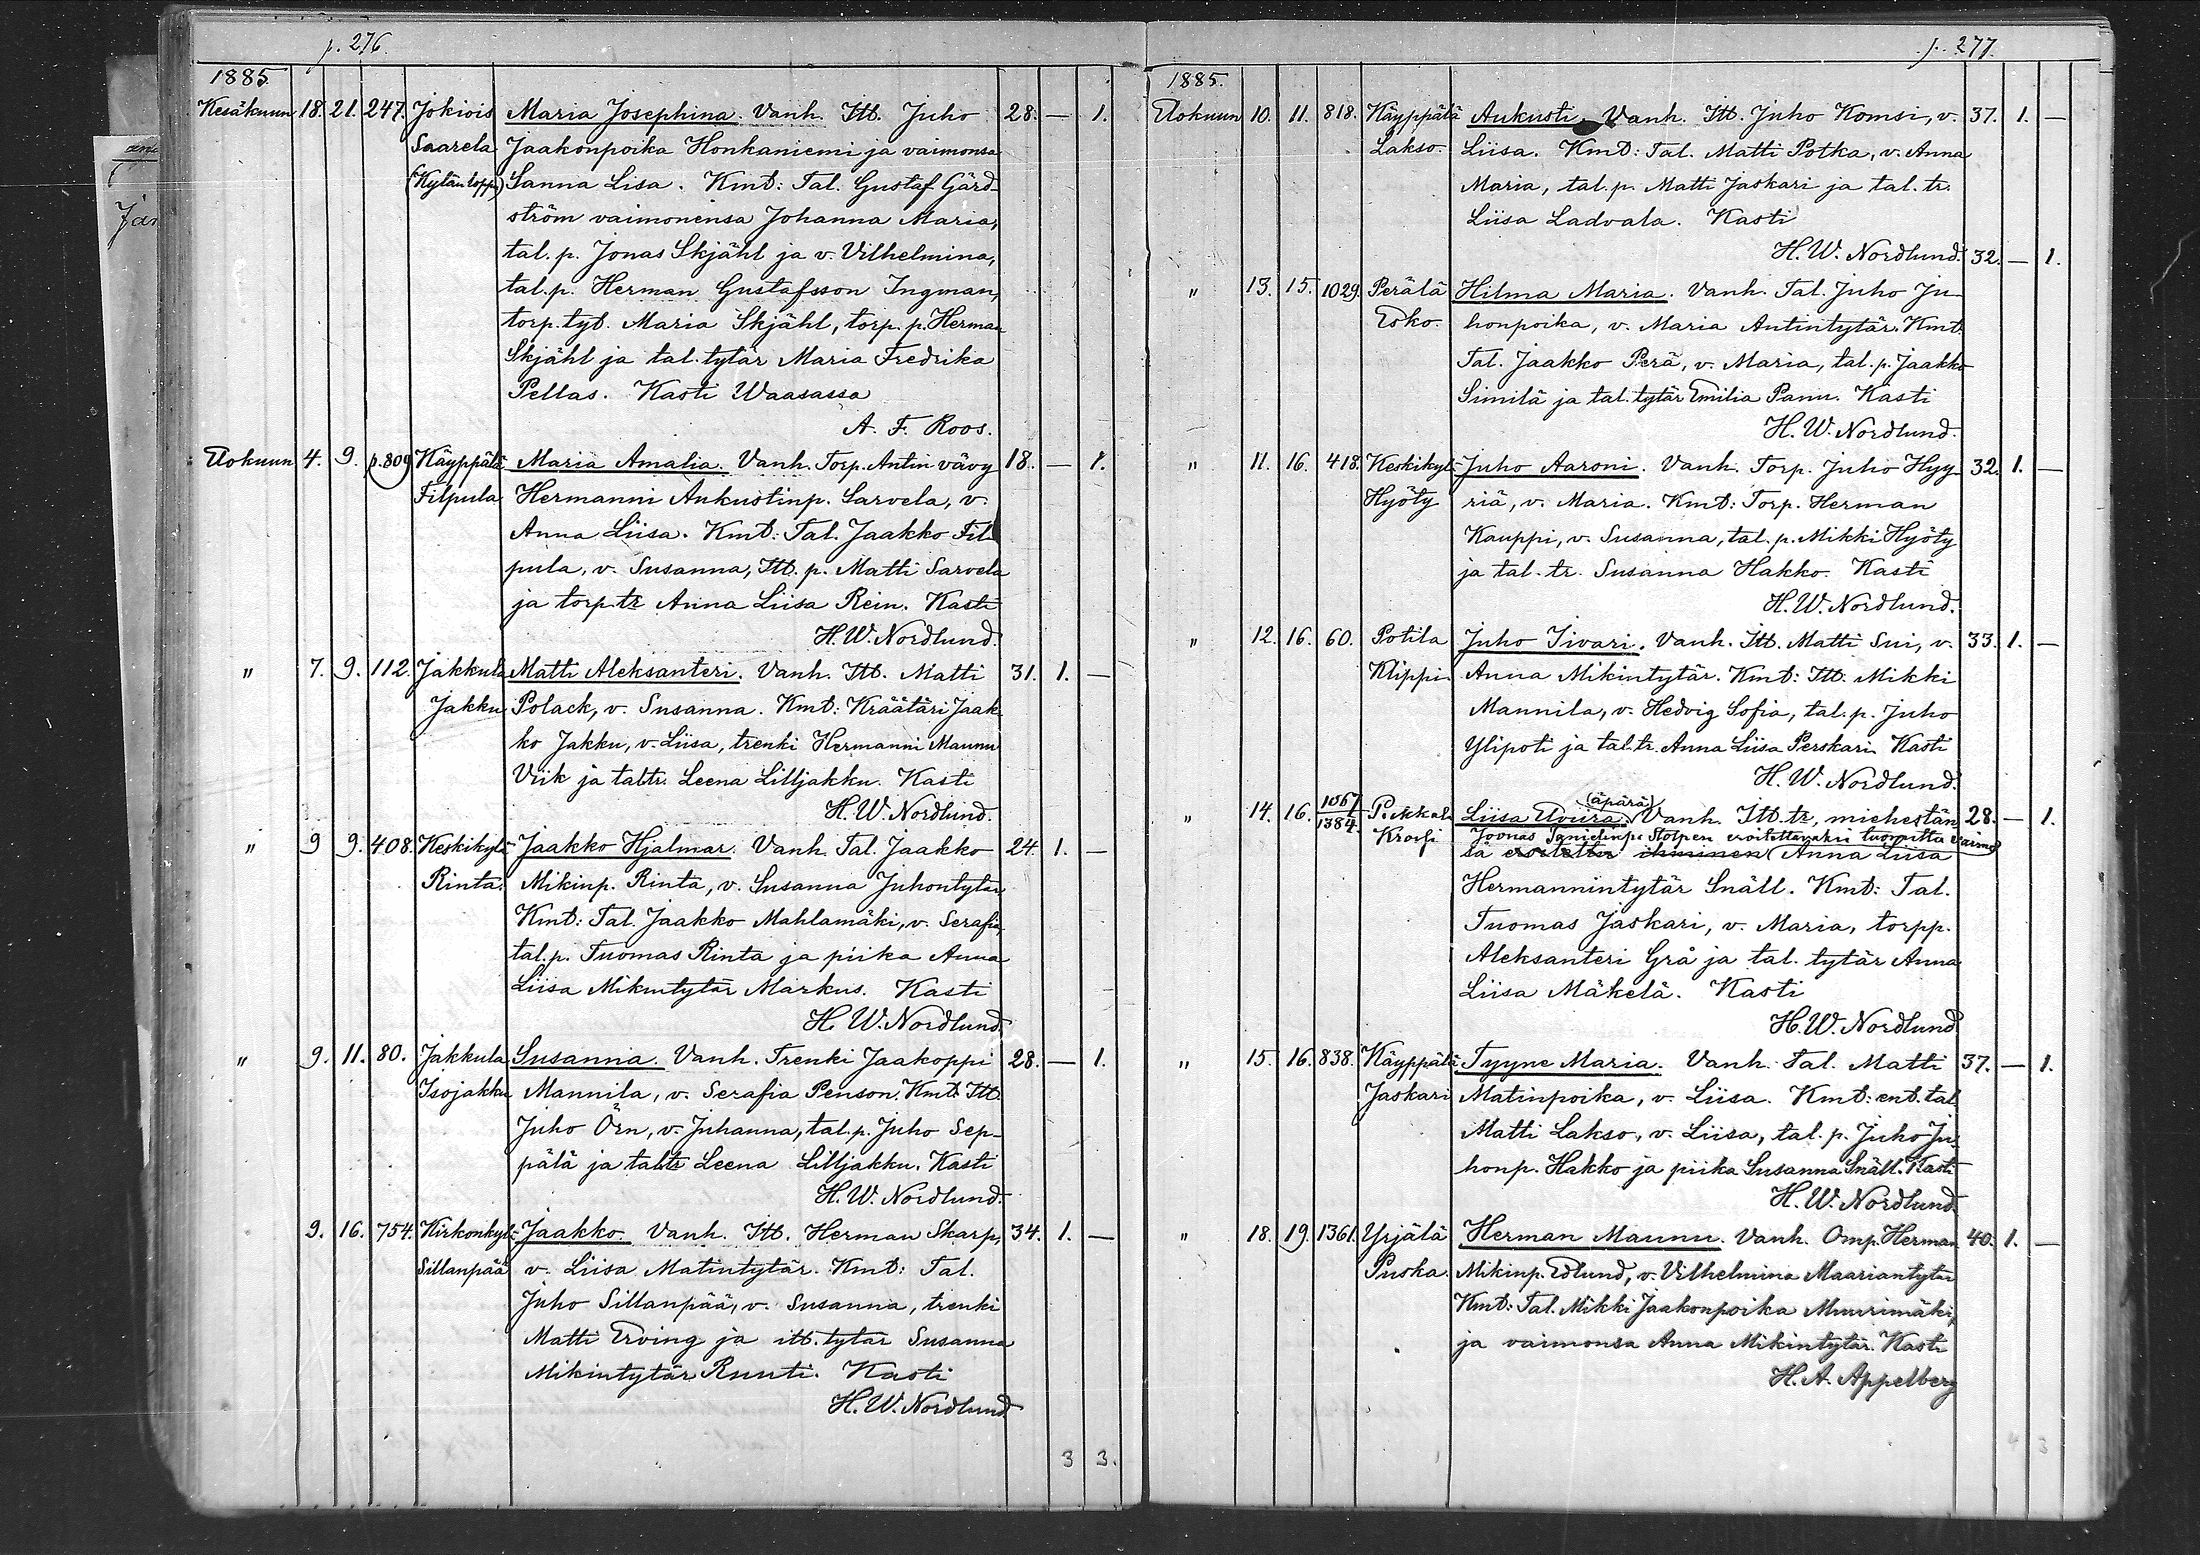 p. 276.
1885
Kesäkuun 18. 21. 247. Jokiois Maria Josephina. Vanh. Itt. Juho 28. — 1.
Saarela Jaakonpoika Honkaniemi ja vaimonsa
(Kyläntopp) Sanna Lisa. Kmt: Tal. Gustaf Gärd-
ström vaimonensa Johanna Maria,
tal. p. Jonas Skjähl ja v. Vilhelmina,
tal. p. Herman Gustafsson Ingman,
torp. tyt. Maria Skjähl, torp. p. Herman
Skjähl ja tal. tytär Maria Fredrika
Pellas. Kasti Waasassa
A. F. Roos.
Elokuun 4. 9. p. 809 Käyppälä Maria Amalia. Vanh. Torp. Antin vävy 18. — 1.
Filpula Hermanni Aukustinp. Sarvela, v.
Anna Liisa. Kmt: Tal. Jaakko Fil-
pula, v. Susanna, Itt. p. Matti Sarvela
ja torp. tr Anna Liisa Rein. Kasti
H. W. Nordlund.
" 7. 9. 112. Jakkula Matti Aleksanteri. Vanh. Itt. Matti 31. 1. —
Jakku Polack, v. Susanna. Kmt: Kräätäri Jaak-
ko Jakku, v. Liisa, trenki Hermanni Maunu
Viik ja tal.tr. Leena Lilljakku. Kasti
H. W. Nordlund.
" 9 9. 408. Keskikylä Jaakko Hjalmar. Vanh. Tal. Jaakko 24. 1. —
Rinta. Mikinp. Rinta, v. Susanna Juhontytär.
Kmt: Tal. Jaakko Mahlamäki, v. Serafia,
tal. p. Tuomas Rinta ja piika Anna
Liisa Mikintytär Markus. Kasti
H. W. Nordlund.
" 9. 11. 80. Jakkula Susanna. Vanh. Trenki Jaakoppi 28. — 1.
Isojakku Mannila, v. Serafia Penson. Kmt: Itt.
Juho Örn, v. Juhanna, tal. p. Juho Sep-
pälä ja tal.tr Leena Lilljakku. Kasti
H. W. Nordlund.
9. 16. 754. Kirkonkyl: Jaakko. Vanh. Itt. Herman Skarp, 34. 1. —
Sillanpää v. Liisa Matintytär. Kmt: Tal.
Juho Sillanpää, v. Susanna, trenki
Matti Erving ja itt. tytär Susanna
Mikintytär Ruuti. Kasti
H. W. Nordlund
3 3.
p. 277.
1885.
Elokuun 10. 11. 818. Käyppälä Aukusti. Vanh. Itt. Juho Komsi, v. 37. 1. —
Lakso. Liisa. Kmt: Tal. Matti Potka, v. Anna
Maria, tal. p. Matti Jaskari ja tal. tr.
Liisa Ladvala. Kasti
H. W. Nordlund. 32. — 1.
" 13. 15. 1029. Perälä Hilma Maria. Vanh. Tal. Juho Ju-
Esko. honpoika, v. Maria Antintytär. Kmt.
Tal. Jaakko Perä, v. Maria, tal. p. Jaakko
Similä ja tal. tytär Emilia Panu. Kasti
H. W. Nordlund.
" 11. 16. 418. Keskikyl: Juho Aaroni. Vanh. Torp. Juho Hyy- 32. 1. —
Hyöty riä, v. Maria. Kmt: Torp. Herman
Kauppi, v. Susanna, tal. p. Mikki Hyöty
ja tal. tr. Susanna Hakko. Kasti
H. W. Nordlund.
" 12. 16. 60. Potila Juho Iivari. Vanh. Itt. Matti Sui, v. 33. 1. —
Klippi. Anna Mikintytär. Kmt: Itt: Mikki
Mannila, v. Hedvig Sofia, tal. p. Juho
Ylipoti ja tal.tr. Anna Liisa Perskari. Kasti
H. W. Nordlund.
(äpärä)
" 14. 16. 1067 1384. Pukkala Liisa Elviira. Vanh. Itt. tr, miehestän 28. — 1.
Joonas Stolpen eroitettavaksi tuomittu vaimo
sä eroitettu ihminen Anna Liisa
Hermannintytär Snäll. Kmt: Tal.
Tuomas Jaskari, v. Maria, torpp.
Aleksanteri Grå ja tal. tytär Anna
Liisa Mäkelä. Kasti
H. W. Nordlund
" 15. 16. 838. Käyppälä Tyyne Maria. Vanh. Tal. Matti 37. — 1.
Jaskari Matinpoika, v. Liisa. Kmt: ent. tal
Matti Lakso, v. Liisa, tal. p. Juho Ju-
honp. Hakko ja piika Susanna Snäll. Kasti
H. W. Nordlund.
" 18. 19. 1361. Yrjälä Herman Maunu. Vanh. Omp. Herman 40. 1. —
Puska. Mikinp. Edlund, v. Vilhelmina Maariantytär
Kmt: Tal. Mikki Jaakonpoika Muurimäki,
ja vaimonsa Anna Mikintytär. Kasti
H. A. Appelberg
4 3